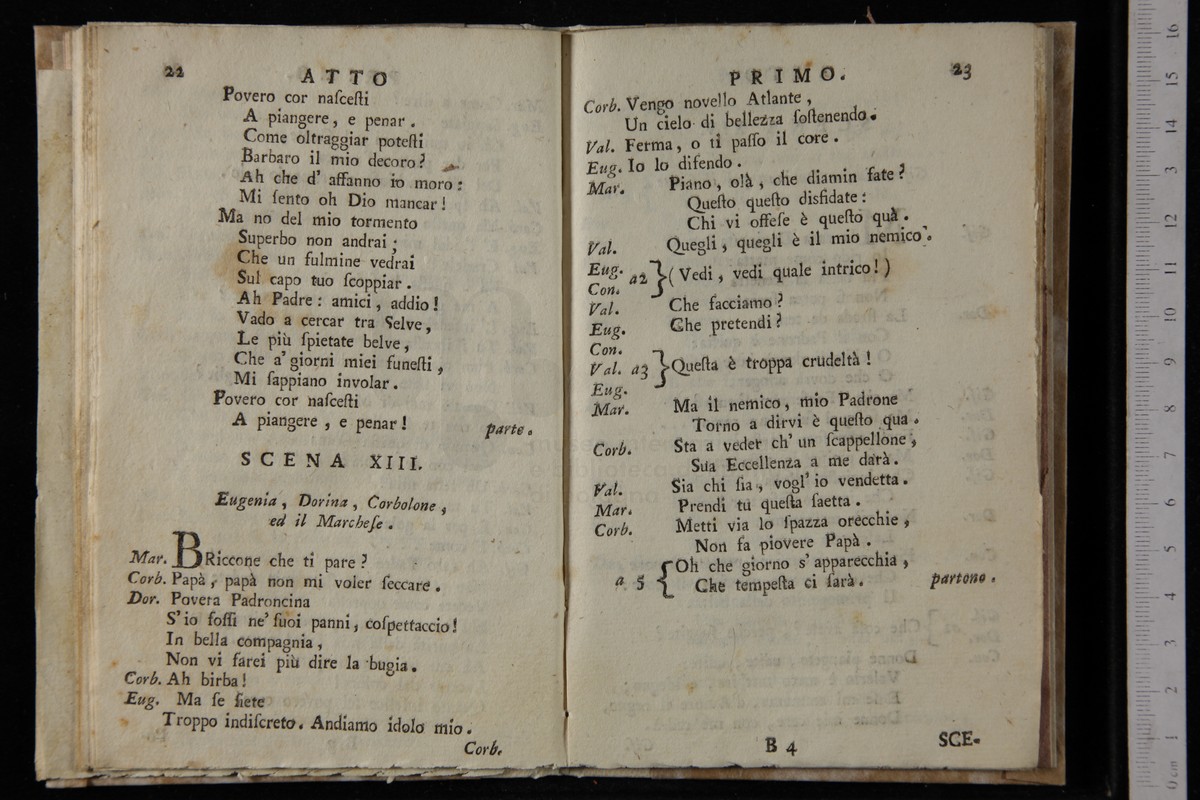 22
ATTO
Povero cor naſceſti
A piangere, e penar.
Come oltraggiar poteſti
Barbaro il mio decoro?
Ah che d' affanno io moro:
Mi ſento oh Dio mancar!
Ma no del mio tormento
Superbo non andrai;
Che un fulmine vedrai
Sul capo tuo ſcoppiar.
Ah Padre: amici, addio!
Vado a cercar tra Selve,
Le più ſpietate belve,
Che a' giorni miei funeſti,
Mi ſappiano involar.
Povero cor naſceſti
A piangere, e penar! parte.
SCENA XIII.
Eugenia, Dorina, Corbolone,
ed il Marcheſe.
Mar. BRiccone che ti pare?
Corb. Papà, papà non mi voler ſeccare.
Dor. Povera Padroncina
S' io foſſi ne' ſuoi panni, coſpettaccio!
In bella compagnia,
Non vi farei più dire la bugia.
Corb. Ah birba!
Eug. Ma ſe ſiete
Troppo indiſcreto. Andiamo idolo mio.
Corb.
PRIMO.
23
Corb. Vengo novello Atlante,
Un cielo di bellezza ſoſtenendo.
Val. Ferma, o ti paſſo il core.
Eug. Io lo difendo.
Mar. Piano, olà, che diamin fate?
Queſto queſto disfidate:
Chi vi offeſe è queſto quà.
Val. Quegli, quegli è il mio nemico.
Eug.
Con. a2 } (Vedi, vedi quale intrico!)
Val. Che facciamo?
Eug. Che pretendi?
Con.
Val. a3 } Queſta è troppa crudeltà!
Eug.
Mar. Ma il nemico, mio Padrone
Torno a dirvi è queſto qua.
Corb. Sta a veder ch' un ſcappellone,
Sua Eccellenza a me darà.
Val. Sia chi ſia, vogl' io vendetta.
Mar. Prendi tu queſta ſaetta.
Corb. Metti via lo ſpazza orecchie,
Non fa piovere Papà.
a 5 { Oh che giorno s' apparecchia,
Che tempeſta ci ſarà. partono.
B 4
SCE-